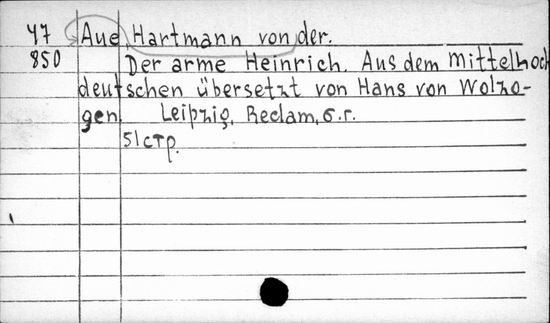 47 Aue, Hartmann von der.
850 Der arme Heinrich. Aus dem Mittelhoch
deutschen übersetzt von Hans von Wolzo-
gen. Leipzig, Reclam, б.г.
51 стр.